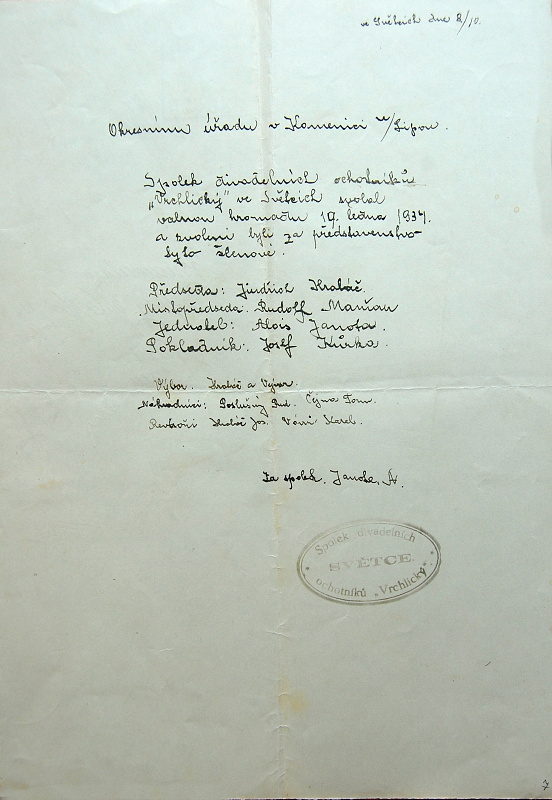 ve Světcích dne 8/10.
Okresnímu úřadu v Kamenici n/Lipou.
Spolek divadelních ochotníků
„Vrchlický" ve Světcích svolal
valnou hromadu 19. ledna 1937.
a zvoleni byli za představenstvo
tyto členové.
Předseda: Jindřich Hrabáč.
Místopředseda. Rudolf Maršau
Jednatel: Alois Janota.
Pokladník: Josef Kůrka.
Výbor. Hrabáč a
Náhradníci: Poslušný Rud. Tom.
Revisoři Hrabáč Jos. Karel.
Za spolek. Janota, A.
Spolek divadelních
SVĚTCE.
ochotníků „Vrchlický"
7